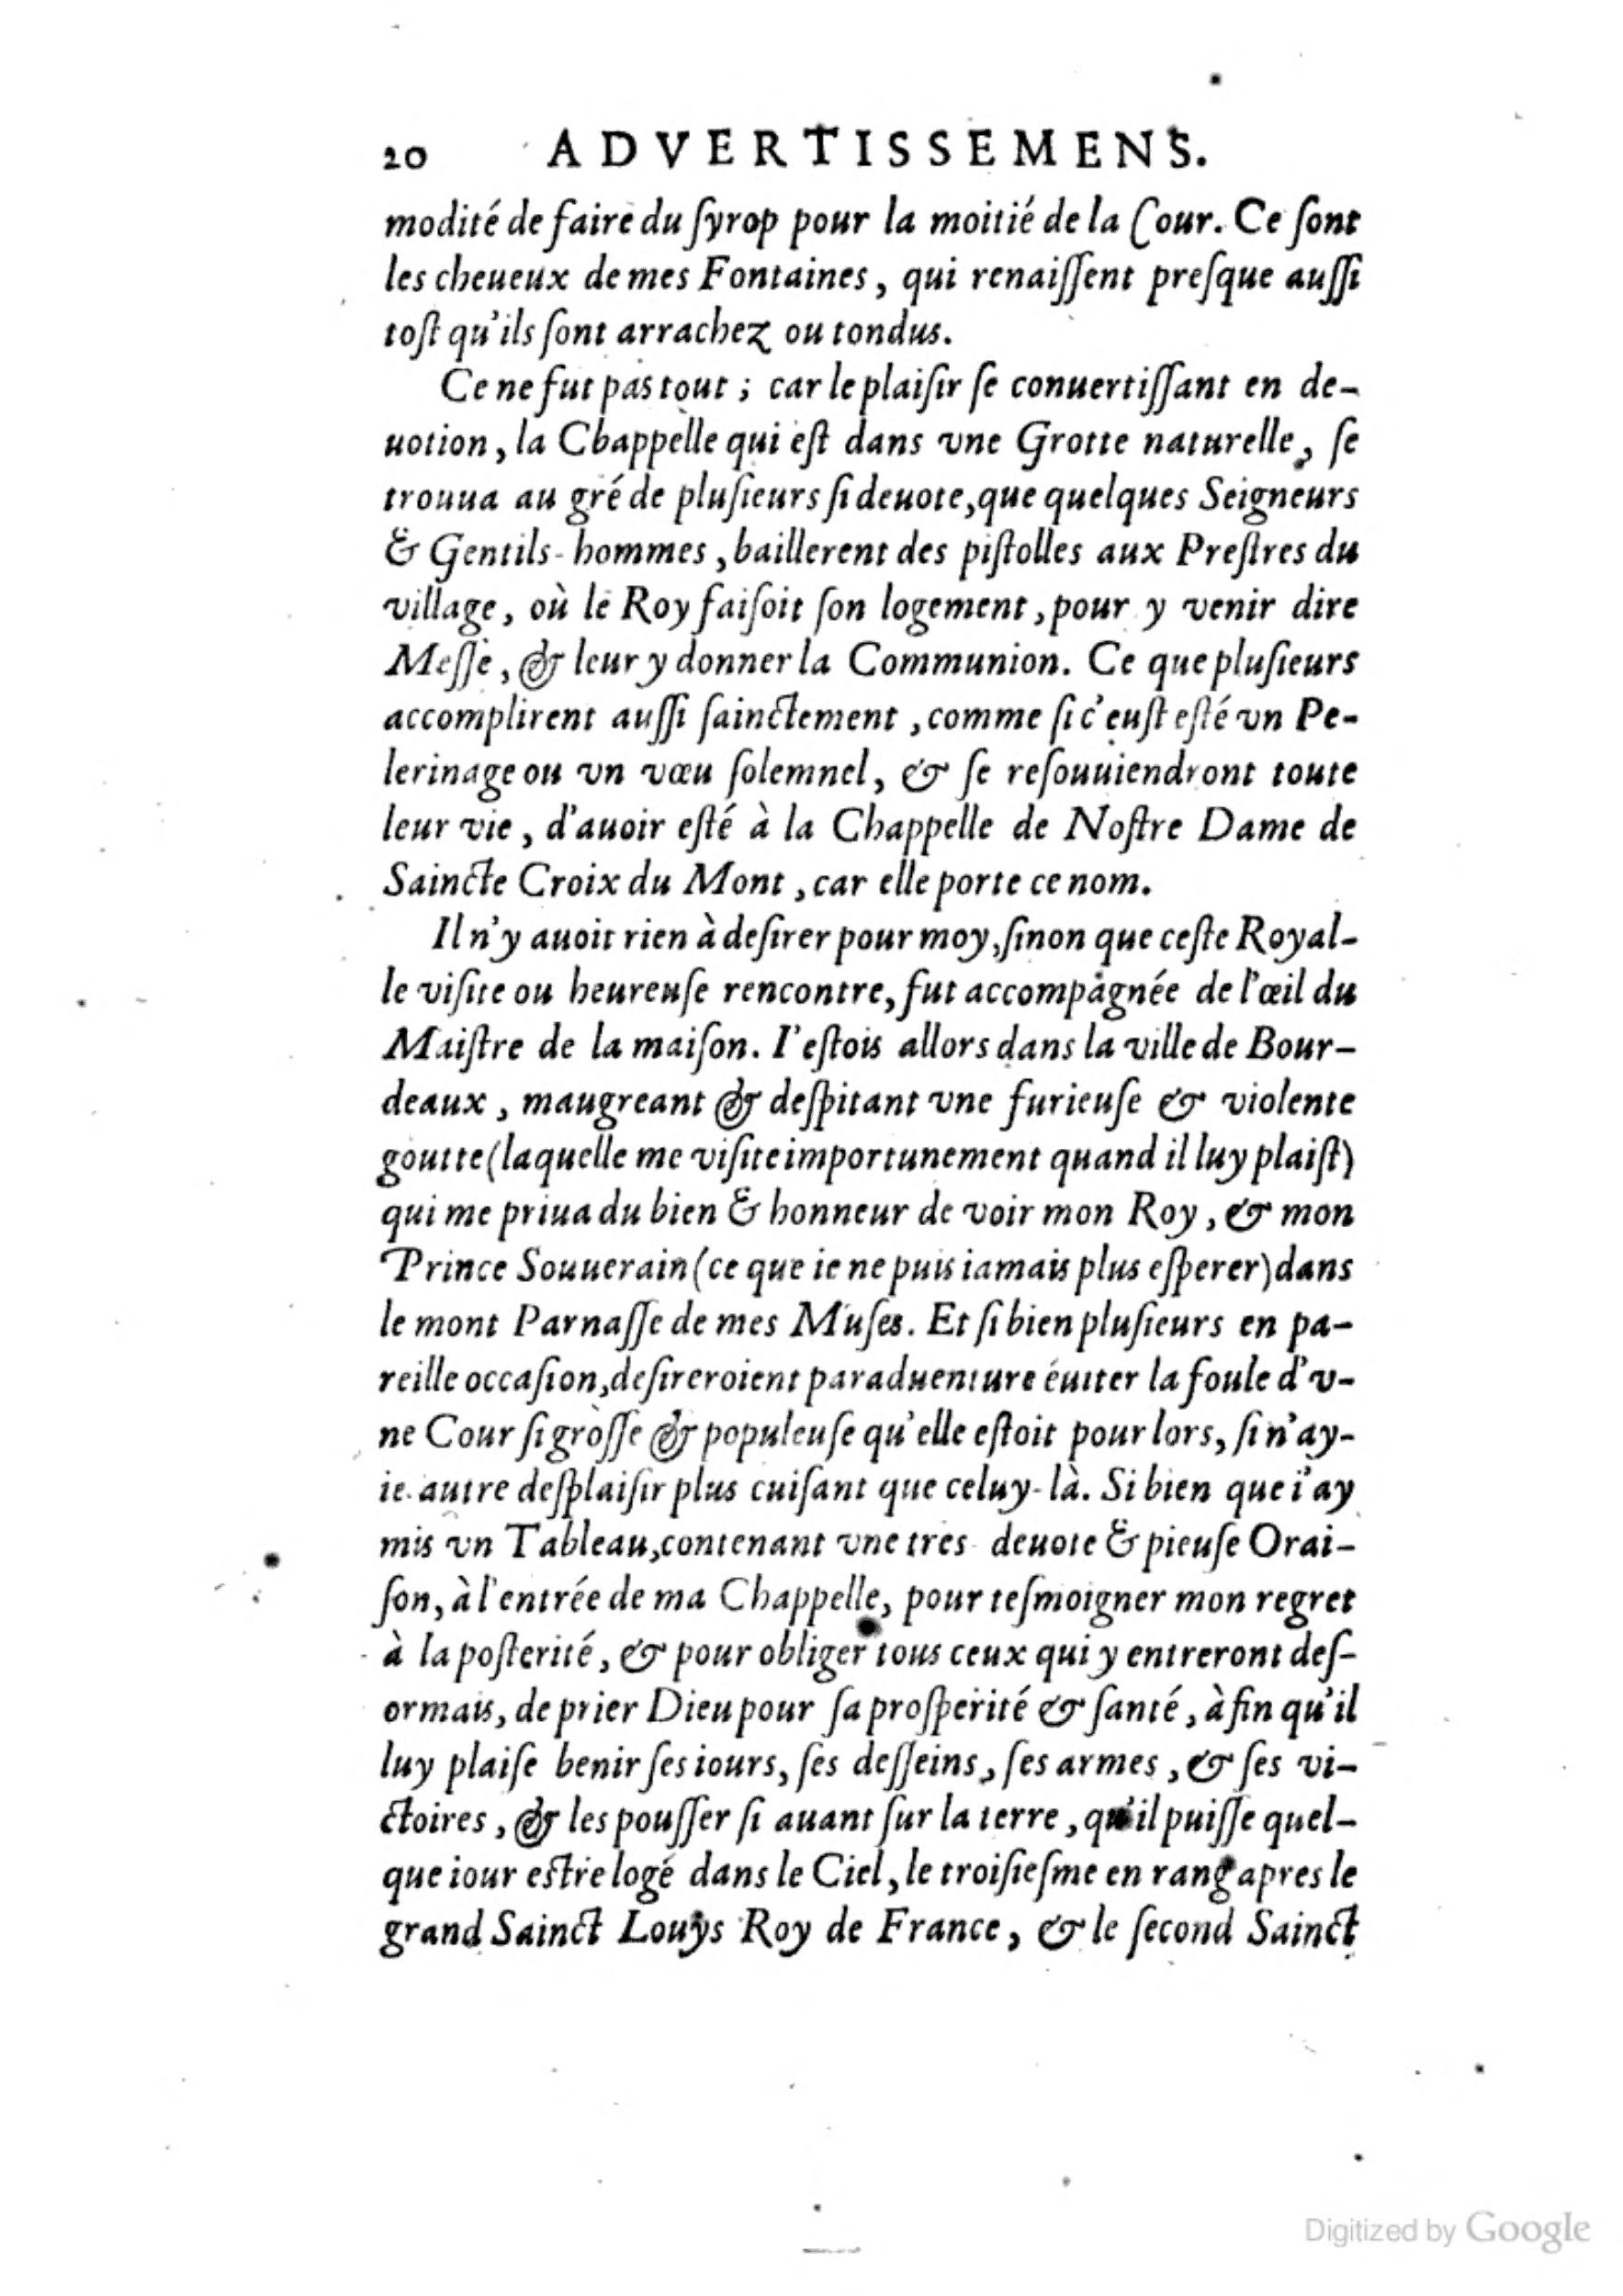 20 ADVERTISSEMENS.
modité de faire du ſyrop pour la moitié de la Cour. Ce ſont
les cheueux de mes Fontaines, qui renaiſſent preſque auſſi
toſt qu'ils ſont arrachez ou tondus.
Ce ne fut pas tout ; car le plaiſir ſe conuertiſſant en de-
uotion, la Chappelle qui eſt dans vne Grotte naturelle, ſe
trouua au gré de pluſieurs ſi deuote, que quelques Seigneurs
& Gentils-hommes, baillerent des piſtolles aux Preſtres du
village, où le Roy faiſoit ſon logement, pour y venir dire
Meſſe, & leur y donner la Communion. Ce que pluſieurs
accomplirent auſſi ſainctement, comme ſi c'euſt eſté vn Pe-
lerinage ou vn vœu ſolemnel, & ſe reſouuiendront toute
leur vie, d'auoir eſté à la Chappelle de Noſtre Dame de
Saincte Croix du Mont, car elle porte ce nom.
Il n'y auoit rien à deſirer pour moy, ſinon que ceſte Royal-
le viſite ou heureuſe rencontre, fut accompagnée de l'œil du
Maiſtre de la maiſon. I'eſtois allors dans la ville de Bour-
deaux, maugreant & deſpitant vne furieuſe & violente
goutte (laquelle me viſite importunement quand il luy plaiſt)
qui me priua du bien & honneur de voir mon Roy, & mon
Prince Souuerain (ce que ie ne puis iamais plus eſperer) dans
le mont Parnaſſe de mes Muſes. Et ſi bien pluſieurs en pa-
reille occaſion, deſireroient paraduenture éuiter la foule d'v-
ne Cour ſi groſſe & populeuſe qu'elle eſtoit pour lors, ſi n'ay-
ie autre deſplaiſir plus cuiſant que celuy-là. Si bien que i'ay
mis vn Tableau, contenant vne tres deuote & pieuſe Orai-
ſon, à l'entrée de ma Chappelle, pour teſmoigner mon regret
à la poſterité, & pour obliger tous ceux qui y entreront deſ-
ormais, de prier Dieu pour ſa proſperité & ſanté, à fin qu'il
luy plaiſe benir ſes iours, ſes deſſeins, ſes armes, & ſes vi-
ctoires, & les pouſſer ſi auant ſur la terre, qu'il puiſſe quel-
que iour eſtre logé dans le Ciel, le troiſieſme en rang apres le
grand Sainct Louys Roy de France, & le ſecond Sainct
Digitized by Google